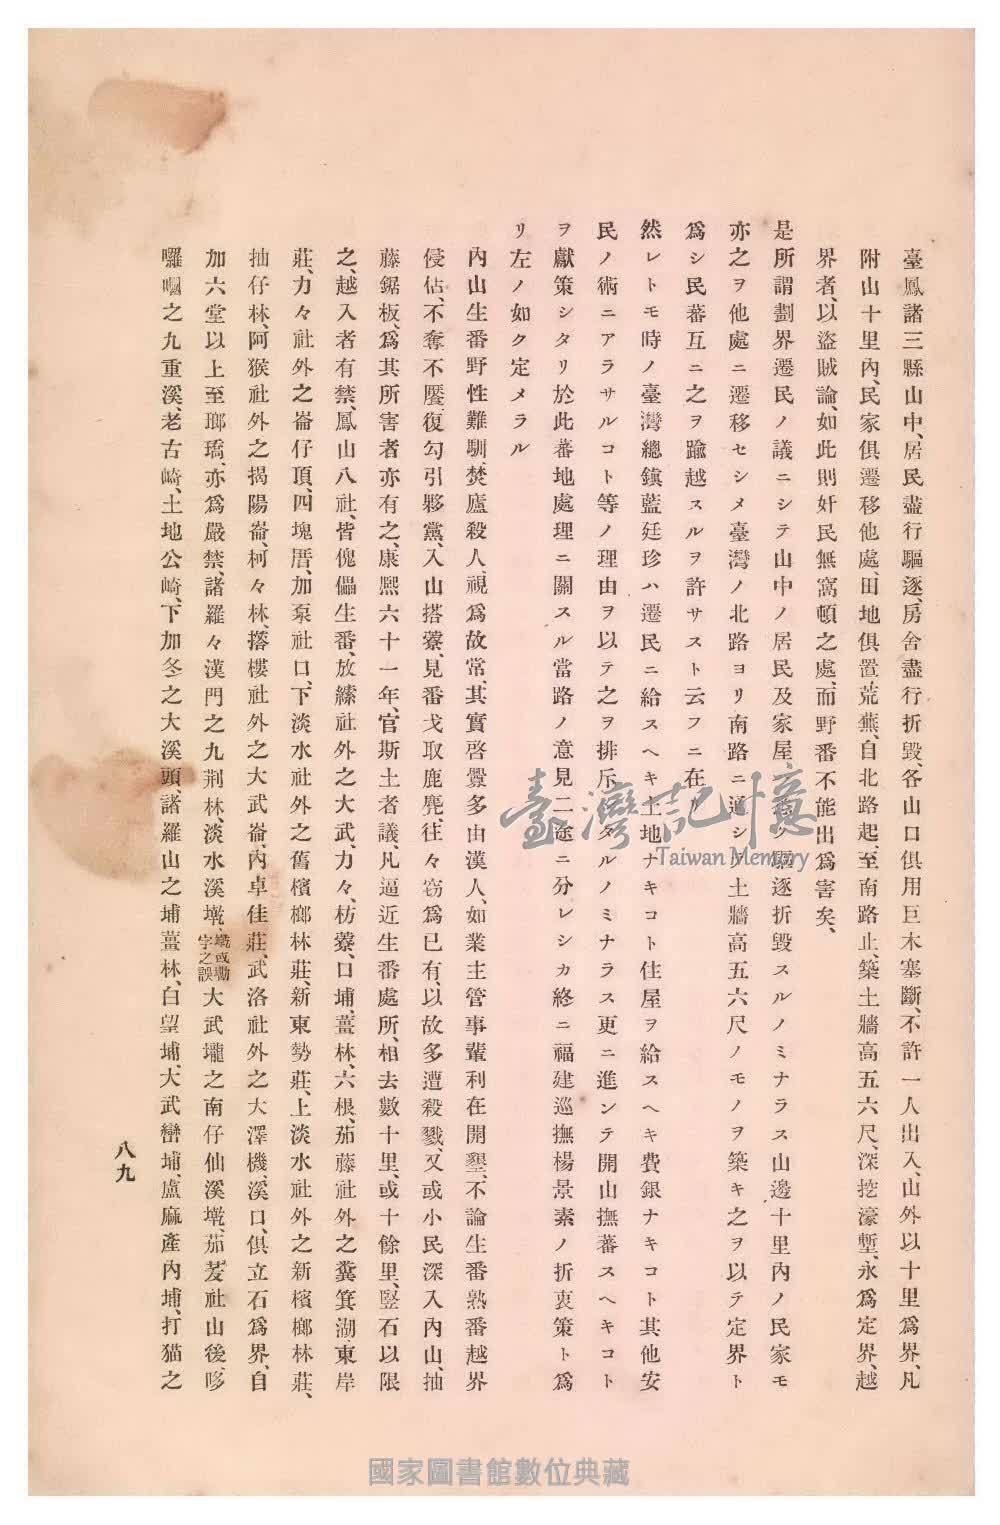 臺鳳諸三縣山中、居民盡行驅逐、房舍盡行折毀、各山口俱用巨木塞斷、不許一人出入、山外以十里爲界、凡
附山十里內、民家俱遷移他處、田地俱置荒蕪、自北路起、至南路止、築土牆高五六尺、深挖濠塹、永爲定界、越
界者、以盜賊論、如此則奸民無窩頓之處、而野番不能出爲害矣、
是所謂劃界遷民ノ議ニシテ山中ノ居民及家屋 驅逐折毀スルノミナラス山邊十里內ノ民家モ
亦之ヲ他處ニ遷移セシメ臺灣ノ北路ヨリ南路ニ通シテ土牆高五六尺ノモノヲ築キ之ヲ以テ定界ト
爲シ民蕃互ニ之ヲ踰越スルヲ許サスト云フニ在リ
然レトモ時ノ臺灣總鎭藍廷珍ハ遷民ニ給スヘキ土地ナキコト住屋ヲ給スヘキ費銀ナキコト其他安
民ノ術ニアラサルコト等ノ理由ヲ以テ之ヲ排斥 タルノミナラス更ニ進ンテ開山撫蕃スヘキコト
ヲ獻策シタリ於此蕃地處理ニ關スル當路ノ意見二途ニ分レシカ終ニ福建巡撫楊景素ノ折衷策ト爲
リ左ノ如ク定メラル
內山生番野性難馴、焚廬殺人、視爲故常、其實啓釁多由漢人、如業主管事輩利在開墾、不論生番熟番越界
侵佔、不奪不饜、復勾引夥黨、入山搭藔、見番戈取鹿麂、往々窃爲已有、以故多遭殺戮、又或小民深入內山、抽
藤鋸板、爲其所害者亦有之、康熙六十一年、官斯土者議、凡逼近生番處所、相去數十里、或十餘里、竪石以限
之、越入者有禁、鳳山八社、皆傀儡生番、放縤社外之大武、力々、枋藔、口埔、薑林、六根、茄藤社外之糞箕湖、東岸
莊、力々社外之崙仔頂、四塊厝、加泵社口、下淡水社外之舊檳榔林莊、新東勢莊、上淡水社外之新檳榔林莊、
抽仔林、阿猴社外之揭陽崙、柯々林、搭樓社外之大武崙、內卓佳莊、武洛社外之大澤機、溪口、俱立石爲界、自
加六堂以上至瑯璚、亦爲嚴禁、諸羅々漢門之九荆林、淡水溪墘、墘或勘字之誤大武壠之南仔仙溪墘、茄茇社山後、哆
囉嘓之九重溪、老古崎、土地公崎、下加冬之大溪頭、諸羅山之埔薑林、白望埔、大武巒埔、盧麻產內埔、打猫之
八九
臺灣記憶
Taiwan Memory
國家圖書館數位典藏